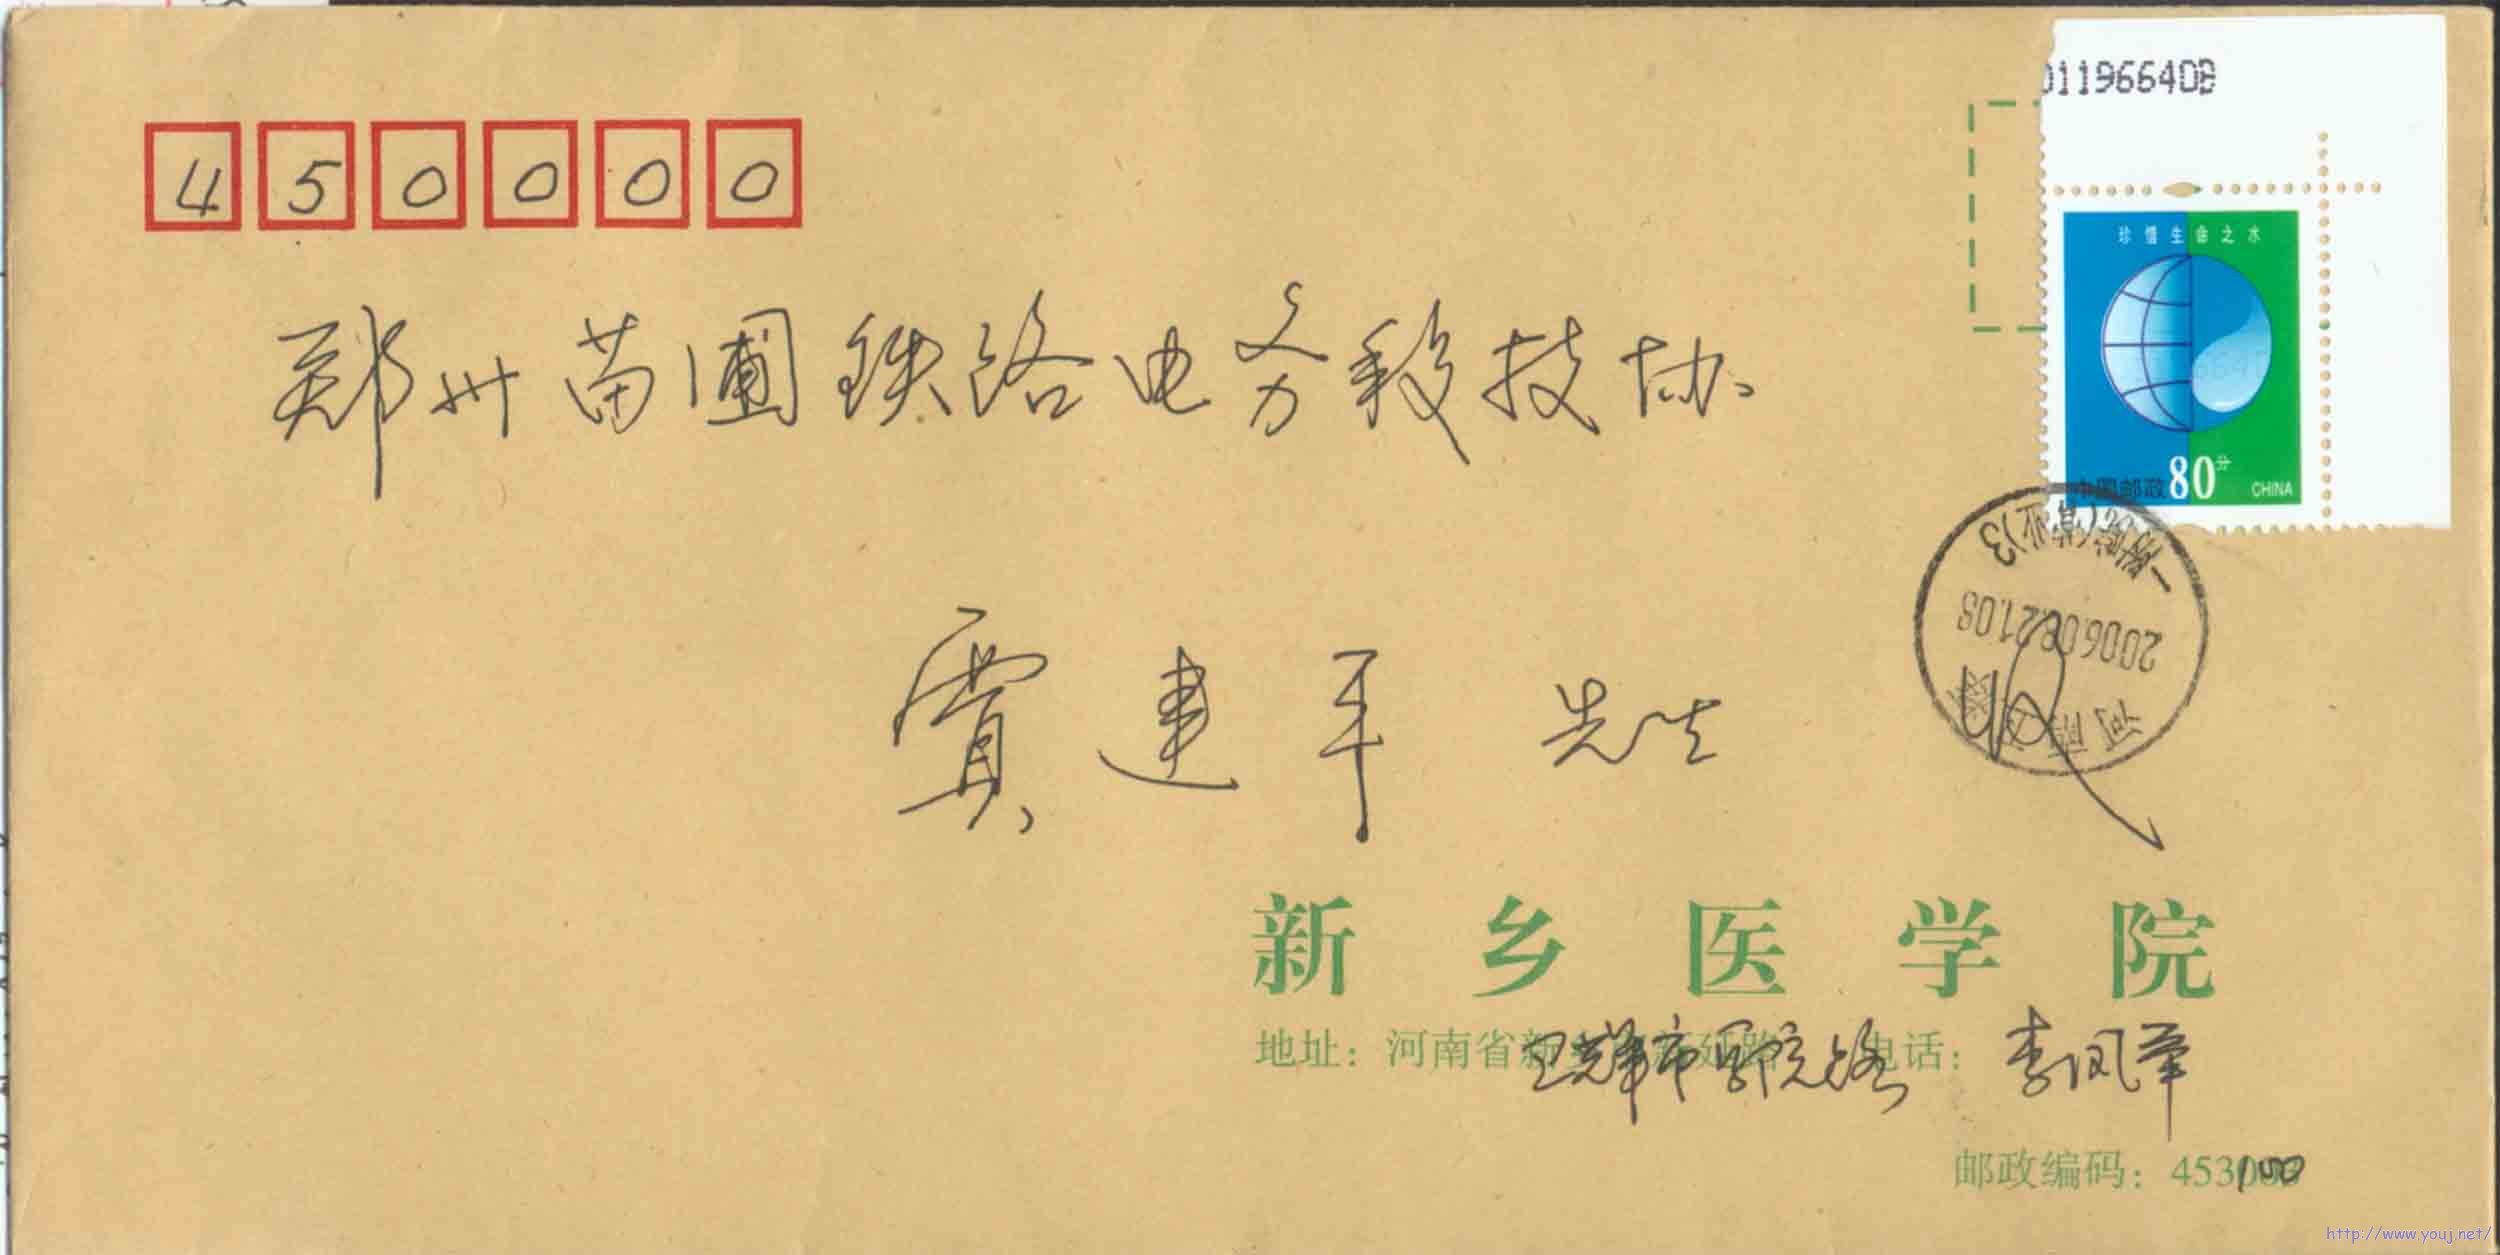 011966408
450000
珍惜生命之水
中国邮政 80分 CHINA
郑州苗圃铁路电务段技协
一附院(营业)3
2006.08.21.08
河南
贾建平 先生 收
新乡医学院
地址：河南省新乡市新延路 电话：
卫辉市医院路 李凤萍
邮政编码：453100
http://www.youj.net/